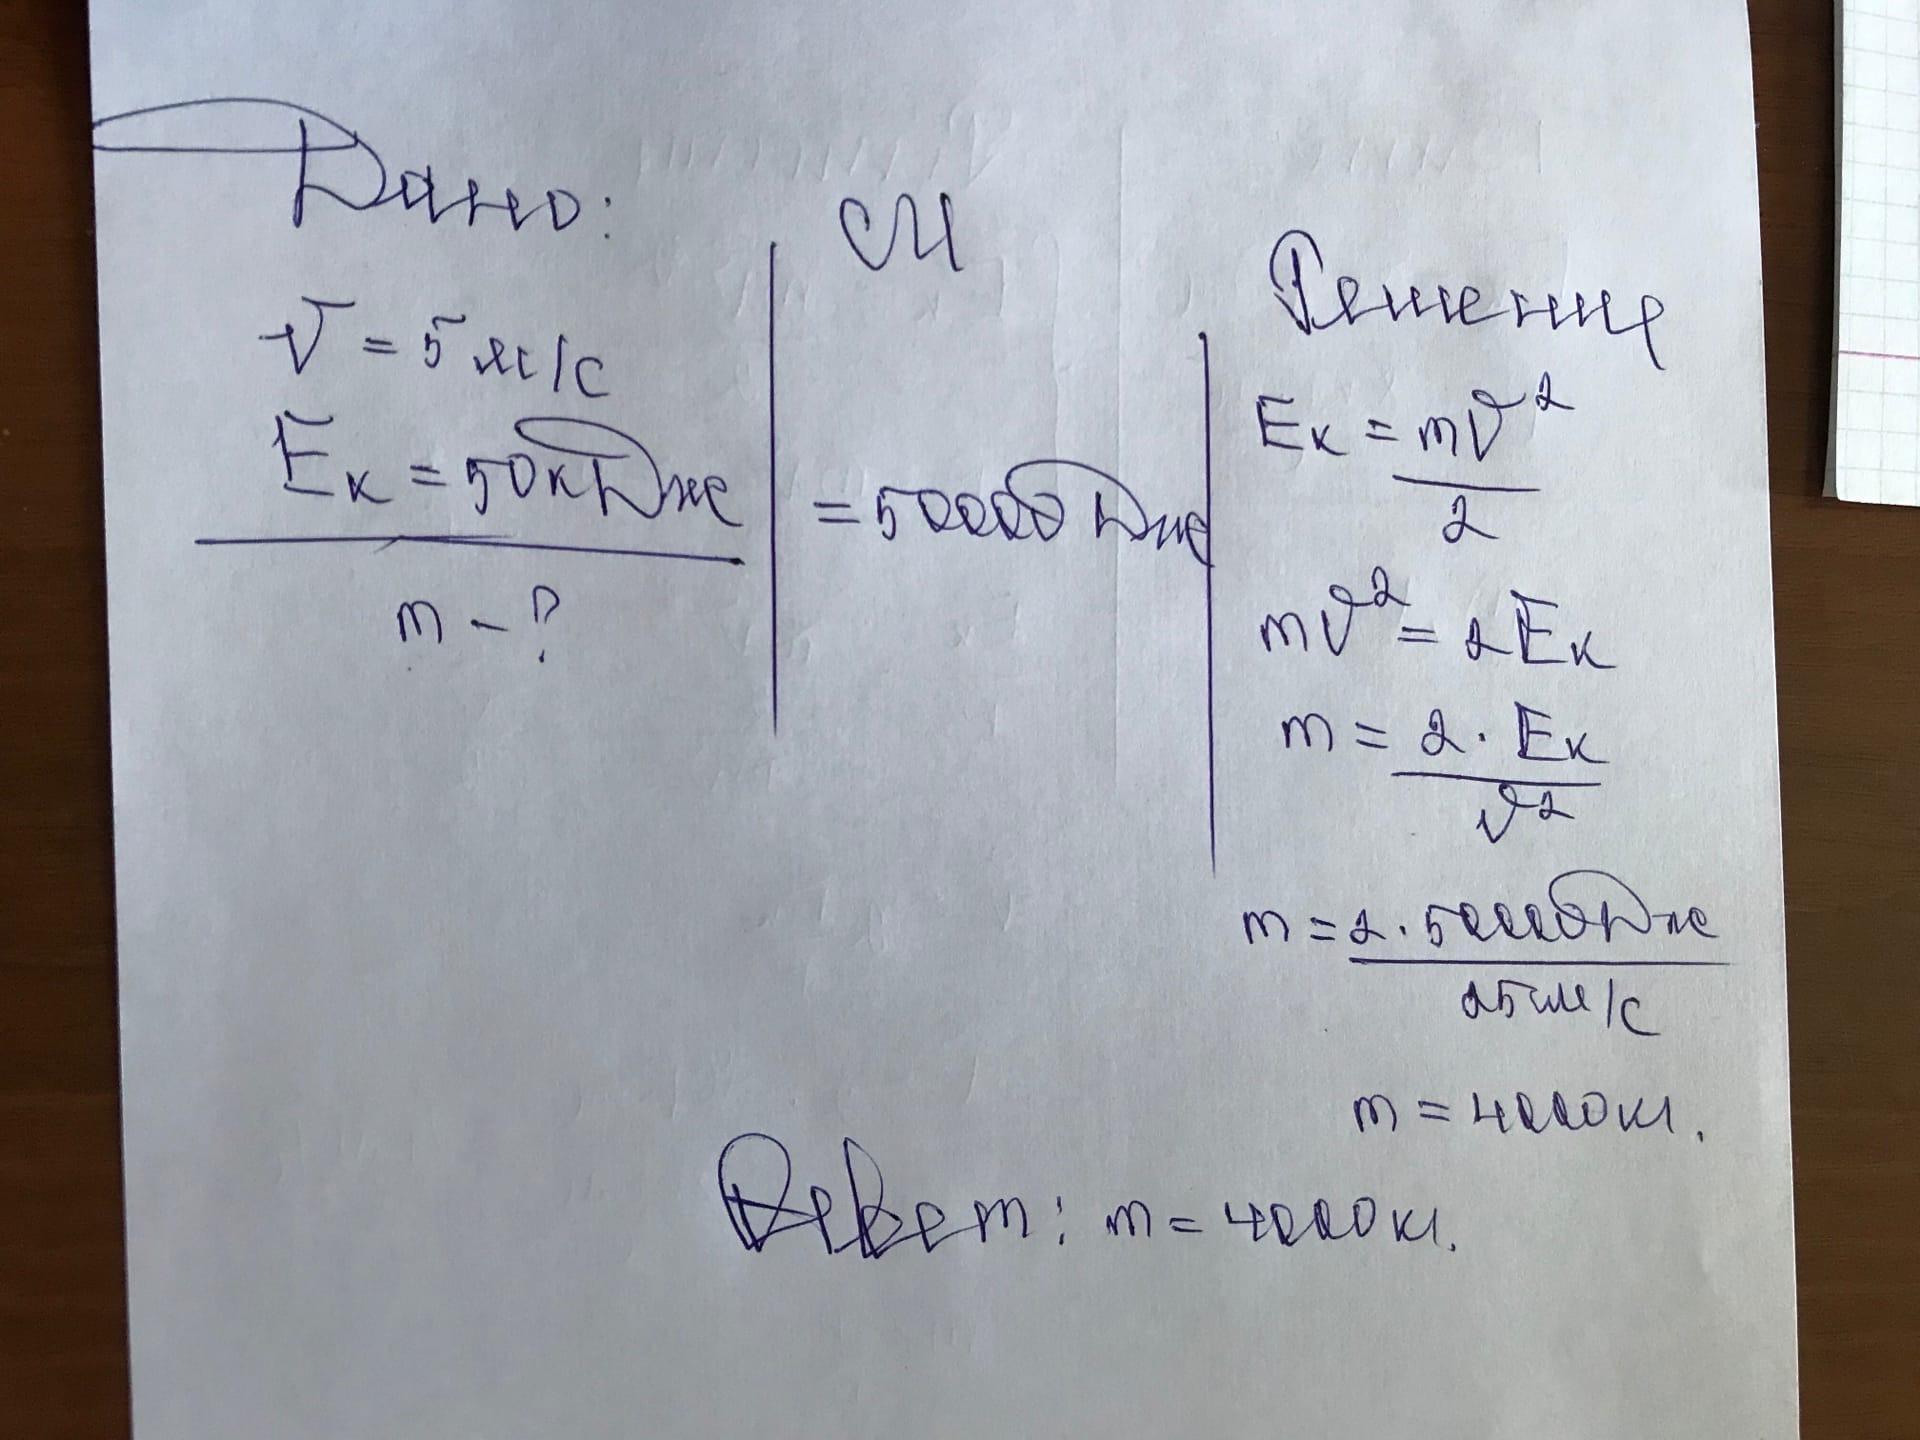 Дано:
v = 5 м/с
Ek = 50кДж
m - ?
СИ
= 50000 Дж
Решение
Ek = mv²
2
mv² = 2Ek
m = 2 · Ek
v²
m = 2 · 50000Дж
25 м/с
m = 4000кг.
Ответ: m = 4000кг.